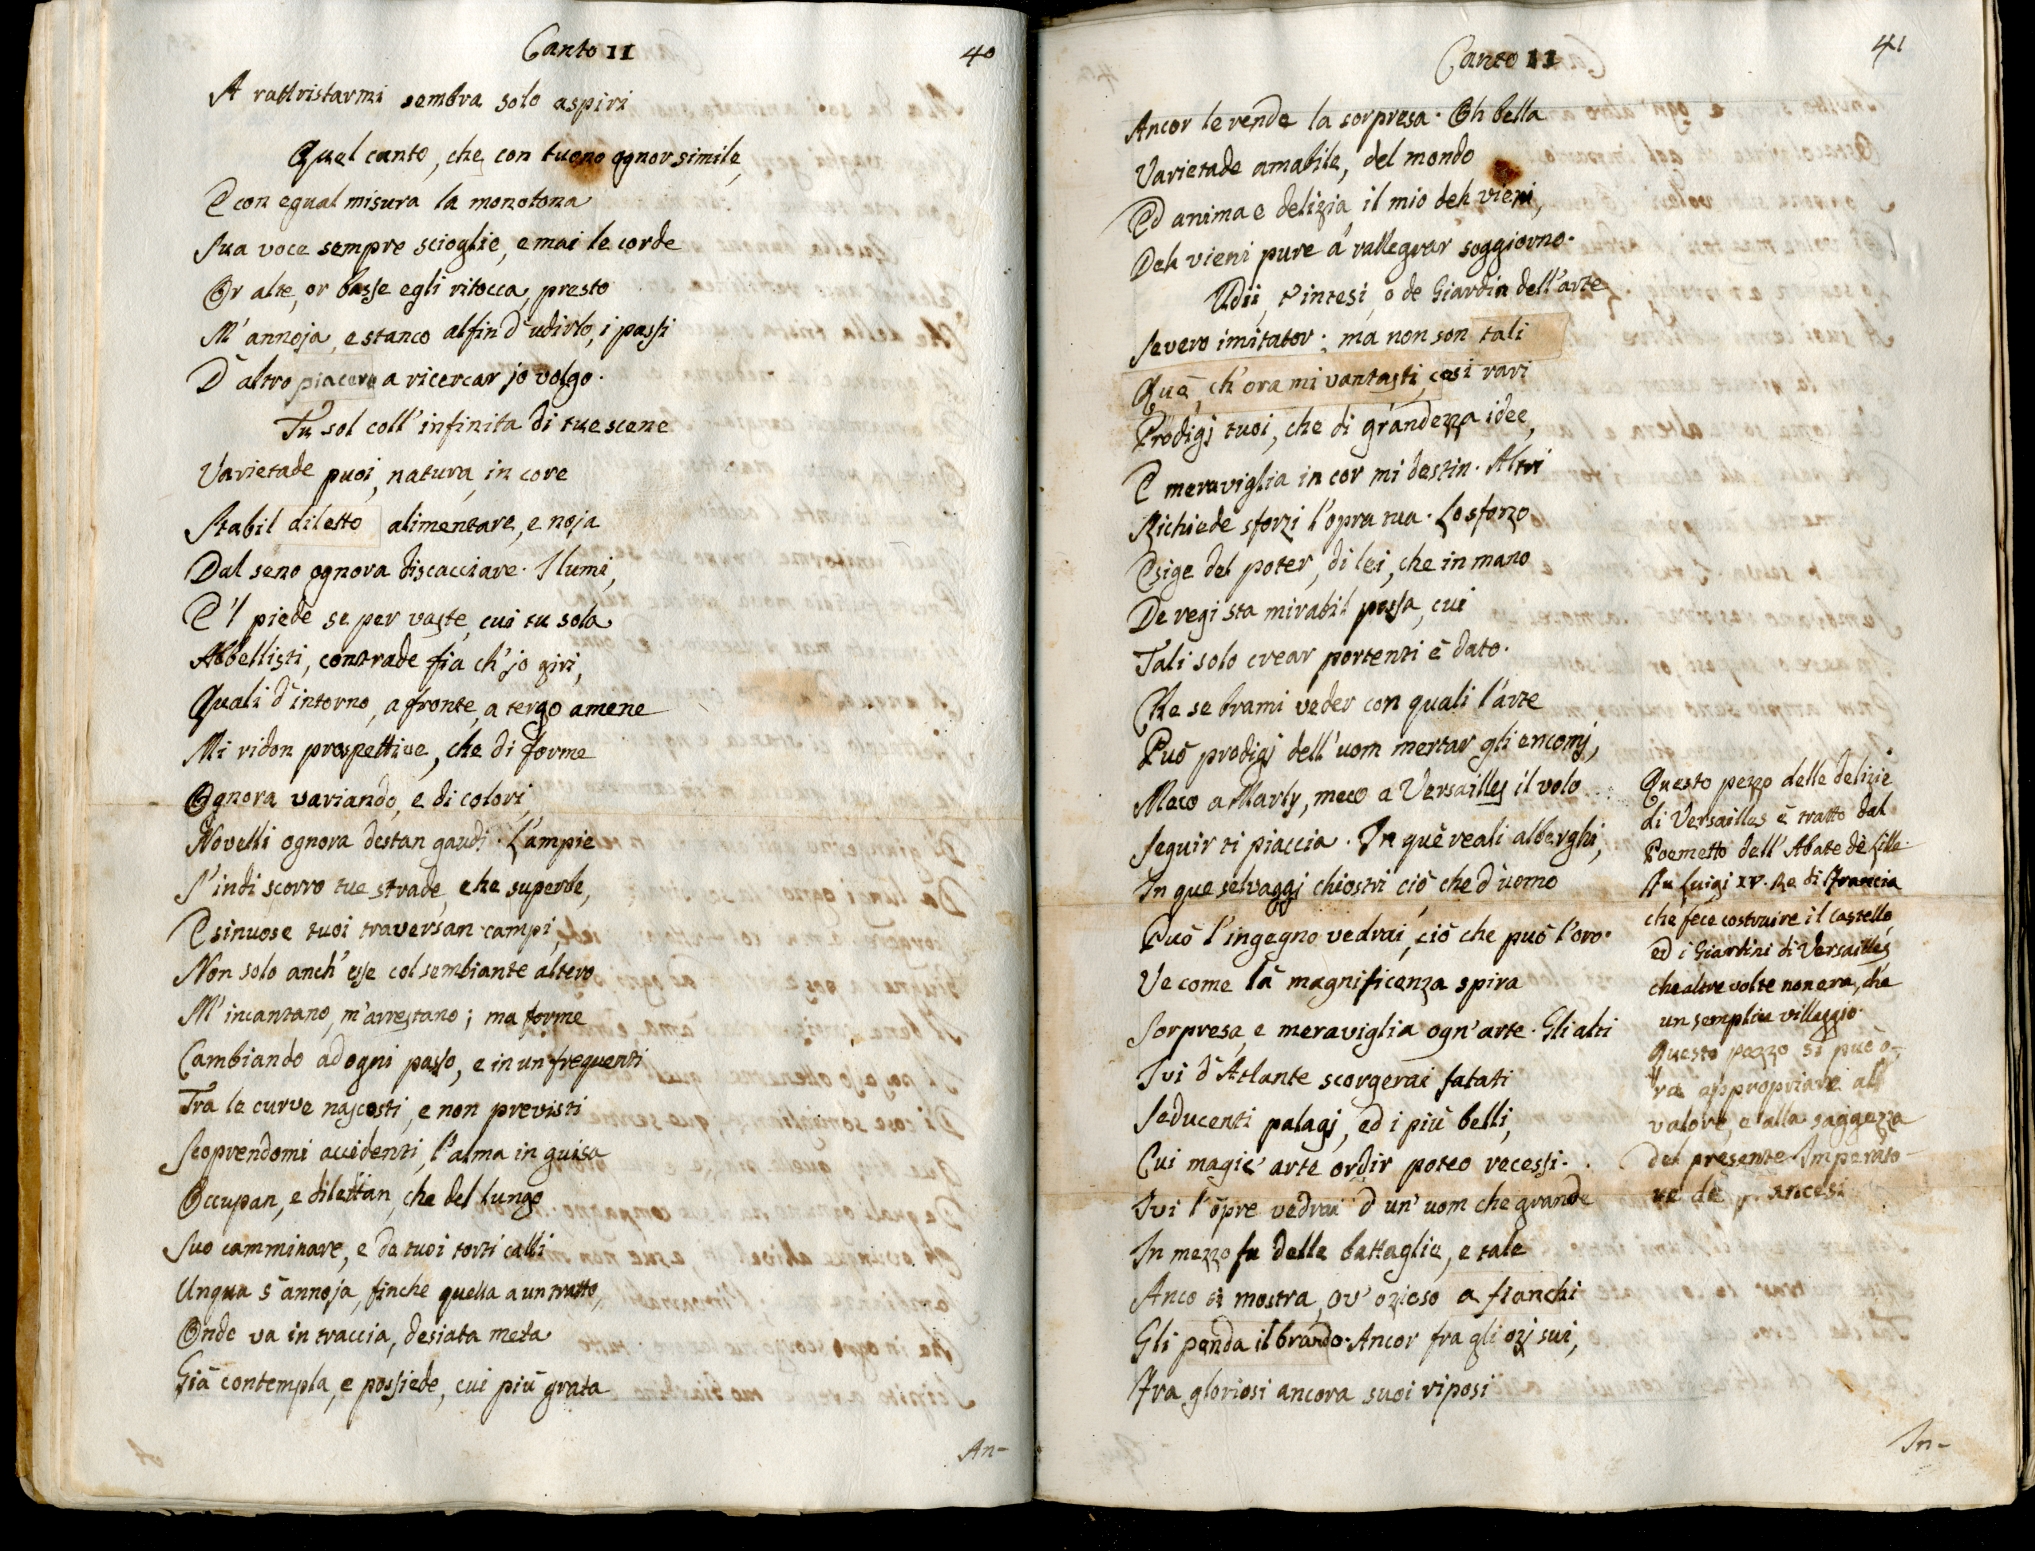 Canto II
40
A rattristarmi sembra solo aspiri
Quel canto, che con tuono ognor simile,
E con egual misura la monotona
Sua voce sempre scioglie, e mai le corde
Or alte, or basse egli ritocca, presto
M'annoja, e stanco alfin d'udirlo, i passi
D'altro piacere a ricercar jo volgo.
Tu sol coll'infinita di tue scene
Varietade puoi, natura, in core
Stabil diletto alimentare, e noja
Dal seno ognora discacciare. I lumi,
E 'l piede se per vaste, cui tu sola
Abbellisti, contrade fia ch'jo giri,
Quali d'intorno, a fronte, a tergo amene
Mi ridon prospettive, che di forme
Ognora variando, e di colori,
Novelli ognora destan gaudi. L'ampie
S'indi scorro tue strade, che superbe,
E sinuose tuoi traversan campi,
Non solo anch'esse col sembiante altero
M'incantano, m'arrestano; ma forme
Cambiando ad ogni passo, e in un frequenti
Tra le curve nascosti, e non previsti
Scoprendomi accidenti, l'alma in guisa
Occupan, e dilettan, che del lungo
Suo camminare, e de tuoi torti calli
Unqua s'annoja, finche quella a un tratto,
Onde va in traccia, desiata meta
Già contempla, e possiede, cui più grata
An-
Canto II
41
Ancor le rende la sorpresa. Oh bella
Varietade amabile, del mondo
Ed anima e delizia, il mio deh vieni,
Deh vieni pure à rallegrar soggiorno.
Udii, t'intesi, o de Giardin dell'arte
Severo imitator; ma non son tali
Què, ch'ora mi vantasti, così rari
Prodigj tuoi, che di grandezza idee,
E meraviglia in cor mi destin. Altri
Richiede sforzi l'opra tua. Lo sforzo
Esige del poter, di lei, che in mano
De regi sta mirabil possa, cui
Tali solo crear portenti è dato.
Che se brami veder con quali l'arte
Può prodigj dell'uom mertar gli encomj,
Meco a Marly, meco a Versailles il volo
Seguir ti piaccia. In què reali alberghi,
In que selvaggj chiostri ciò che d'uomo
Può l'ingegno vedrai, ciò che può l'oro.
Ve come là magnificenza spira
Sorpresa, e meraviglia ogn'arte. Gli alti
Ivi d'Atlante scorgerai fatati
Seducenti palagj, ed i più belli,
Cui magic'arte ordir poteo recessi.
Ivi l'opre vedrai d'un'uom che grande
In mezzo fu delle battaglie, e tale
Anco si mostra, ov'ozioso a fianchi
Gli penda il brando. Ancor fra gli ozj sui,
Fra gloriosi ancora suoi riposi
Questo pezzo delle delizie
di Versailles è tratto dal
Poemetto dell'Abate de Lille.
Fu Luigi XV. Re di Francia
che fece costruire il castello,
ed i Giardini di Versailles,
che altre volte non era, che
un semplice villaggio.
Questo pezzo si può o-
ra appropriare al
valore, e alla saggezza
del presente Imperato-
re de Francesi
In-